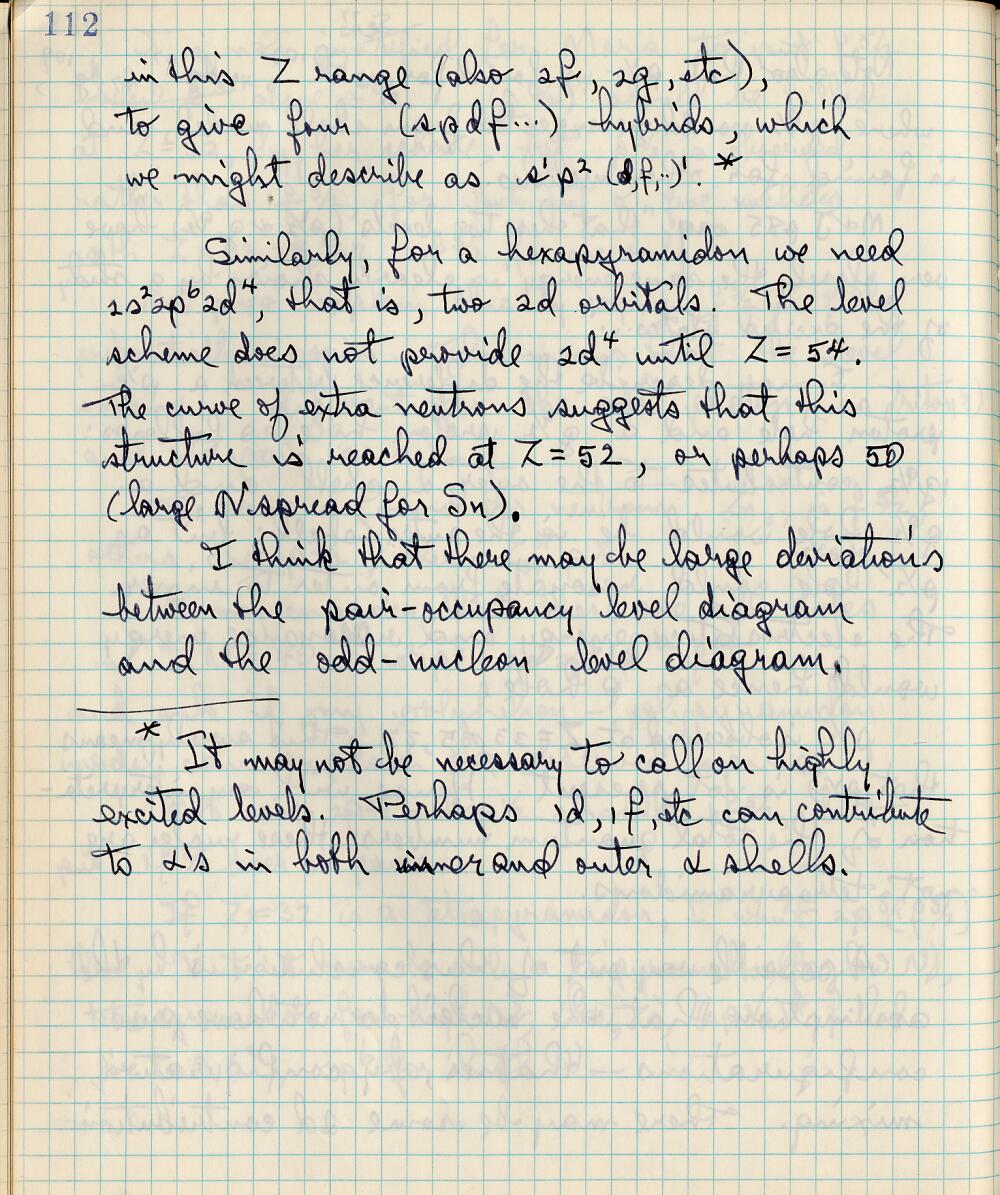 112
in this Z range (also 2f, 2g, etc),
to give four (spdf...) hybrids, which
we might describe as s¹p² (d,f,..)¹. *
Similarly, for a hexapyramidon we need
2s²2p⁶2d⁴, that is, two 2d orbitals. The level
scheme does not perovide 2d⁴ until Z = 54.
The curve of extra neutrons suggests that this
structure is reached at Z = 52, or perhaps 50
(large N spread for Sn).
I think that there may be large deviations
between the pair-occupancy level diagram
and the odd-nucleon level diagram.
* It may not be necessary to call on highly
excited levels. Perhaps 1d, 1f, etc can contribute
to α's in both inner and outer α shells.